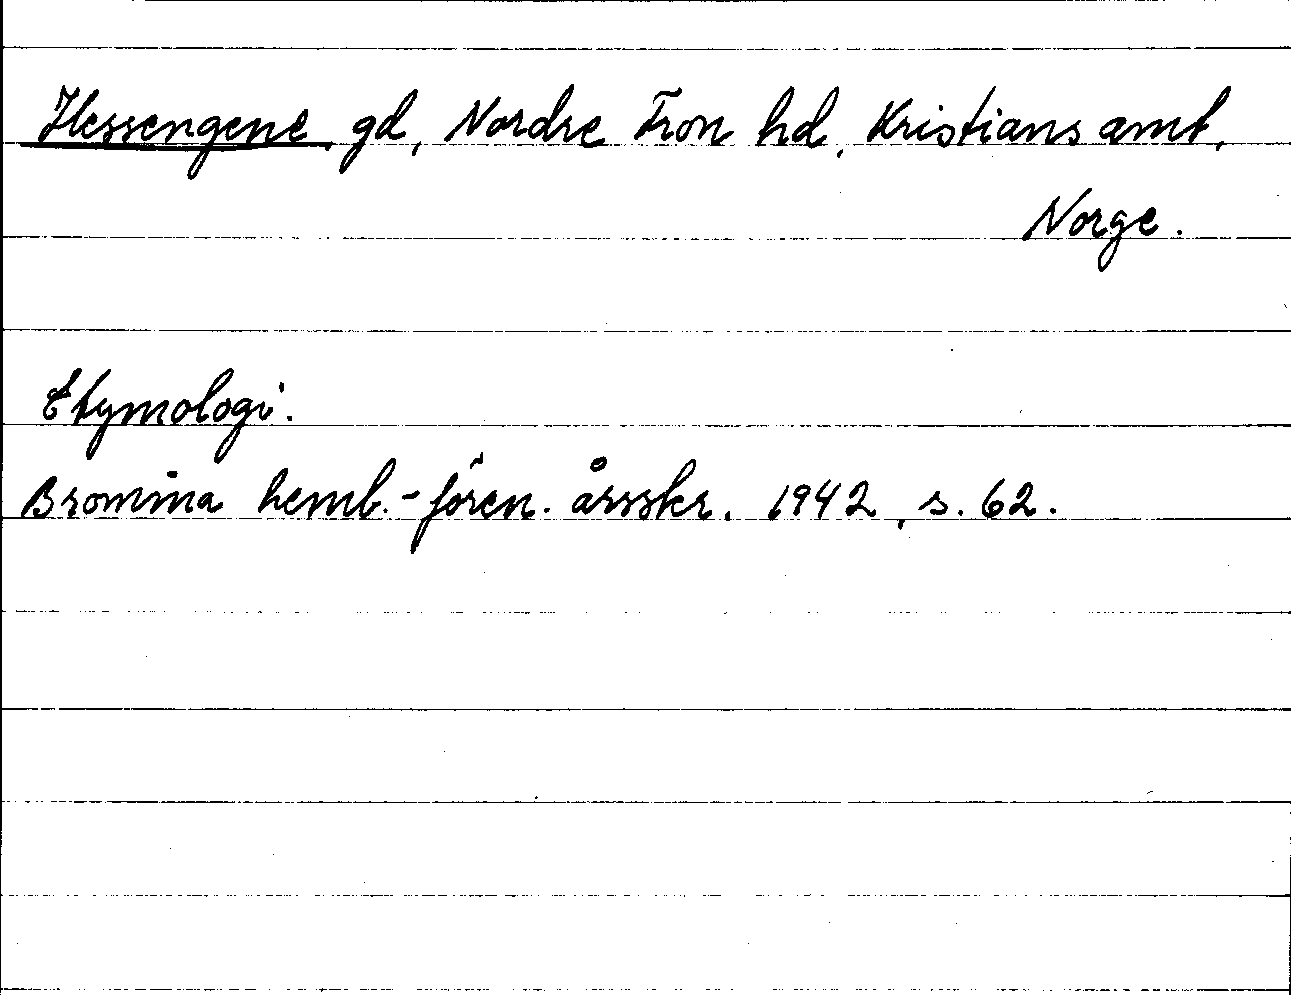 Hessengene, gd, Nordre Fron hd, Kristians amt,
Norge.
Etymologi.
Bromma hemb.-fören. årsskr. 1942, s. 62.